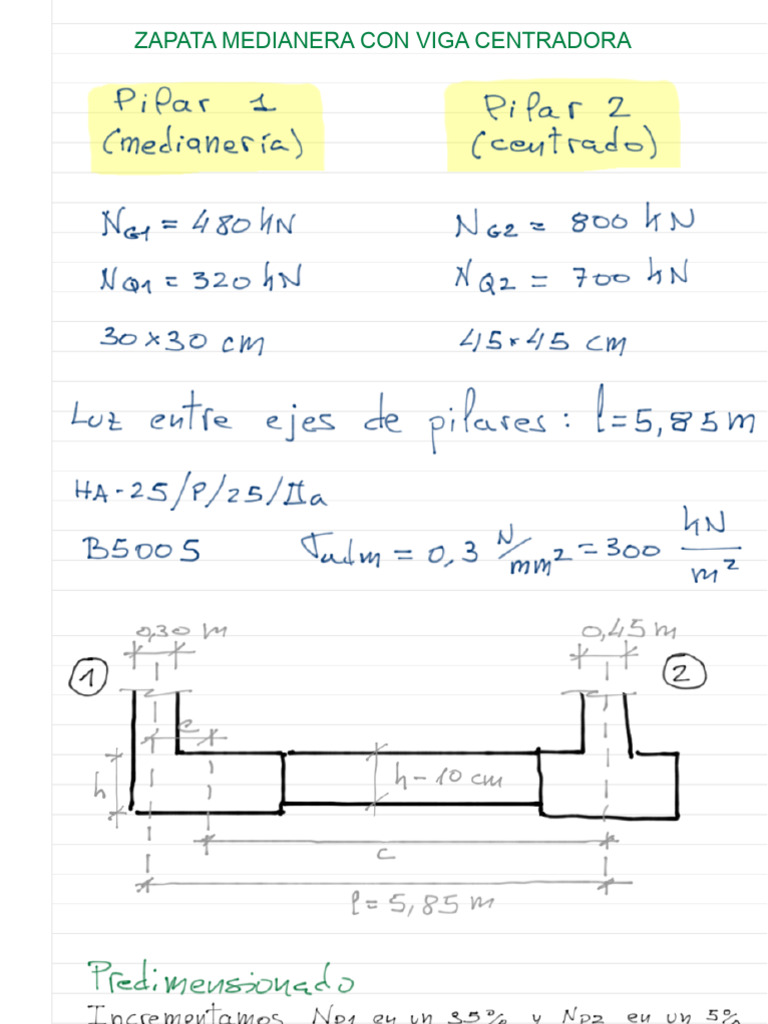 ZAPATA MEDIANERA CON VIGA CENTRADORA
Pilar 1
(medianería)
Pilar 2
(centrado)
NG1 = 480 kN
NG2 = 800 kN
NQ1 = 320 kN
NQ2 = 700 kN
30×30 cm
45×45 cm
Luz entre ejes de pilares: l=5,85m
HA-25/P/25/IIa
B500S
σadm = 0,3 N/mm² = 300 kN/m²
0,30 m
0,45 m
1
2
e
h
h-10 cm
c
l= 5,85 m
Predimensionado
Incrementamos NP1 en un 35% y NP2 en un 5%